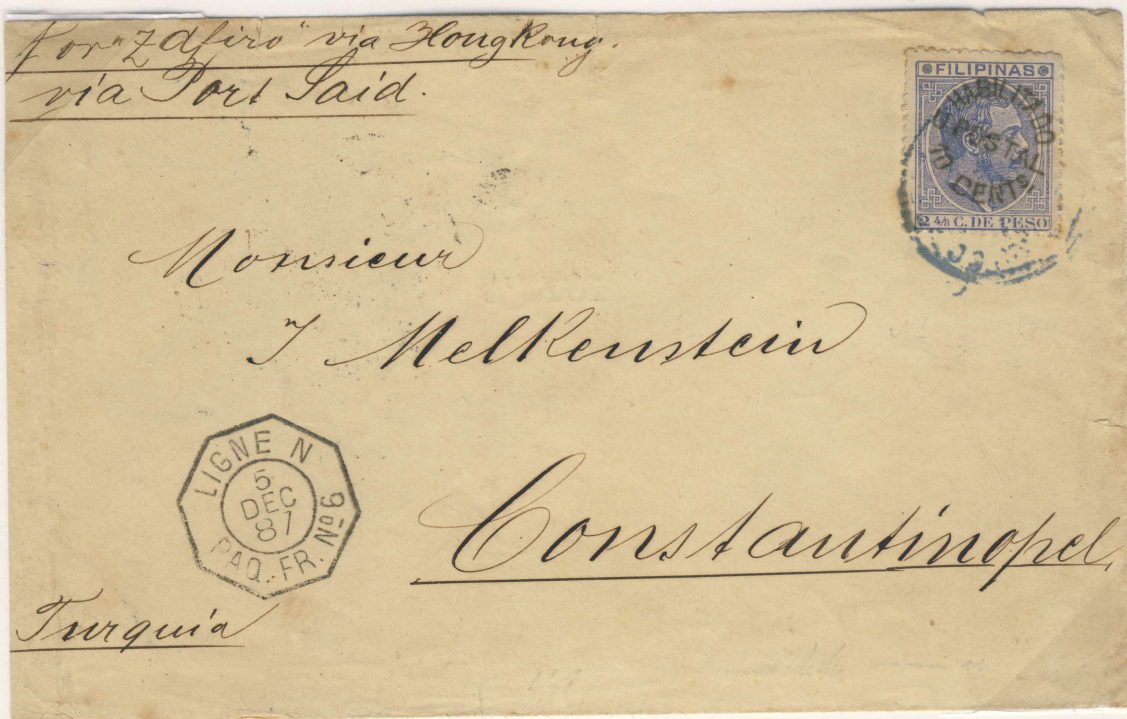 For "Zafiro" via Hongkong.
via Port Said.
FILIPINAS
HABILITADO
U. POSTAL
10 CENTS
2 4/8 C. DE PESO
Monsieur
J Melkenstein
LIGNE N
5
DEC
87
PAQ. FR. Nº 6
Constantinopel,
Turquia